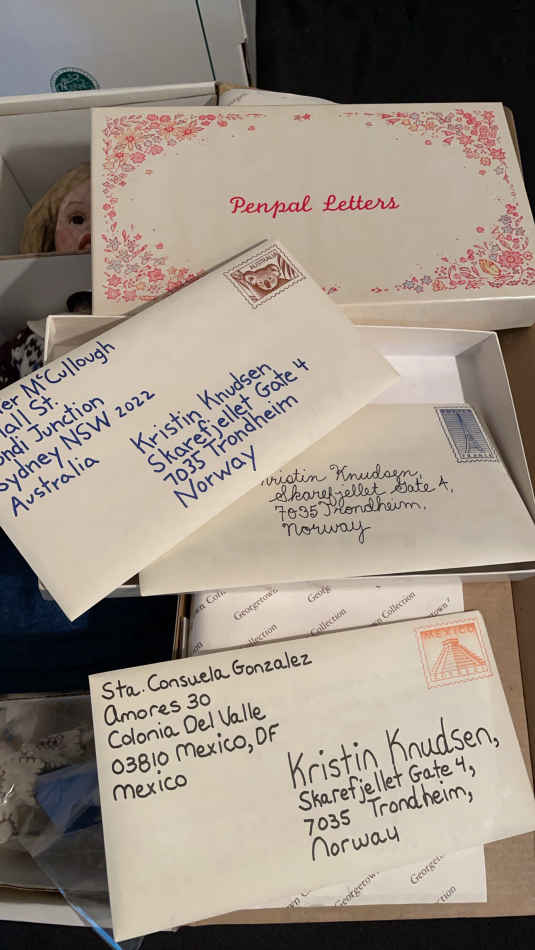 Penpal Letters
AUSTRALIA
McCullough
St.
Junction
Sydney NSW 2022
Australia
Kristin Knudsen
Skarefjellet Gate 4
7035 Trondheim
Norway
Knudsen,
Skarefjellet Gate 4,
7035 Trondheim,
Norway
Georgetown
Georgetown Collection
Collection
MEXICO
Sta. Consuela Gonzalez
Amores 30
Colonia Del Valle
03810 Mexico, DF
Mexico
Kristin Knudsen,
Skarefjellet Gate 4,
7035 Trondheim,
Norway
Georgetown
Collection